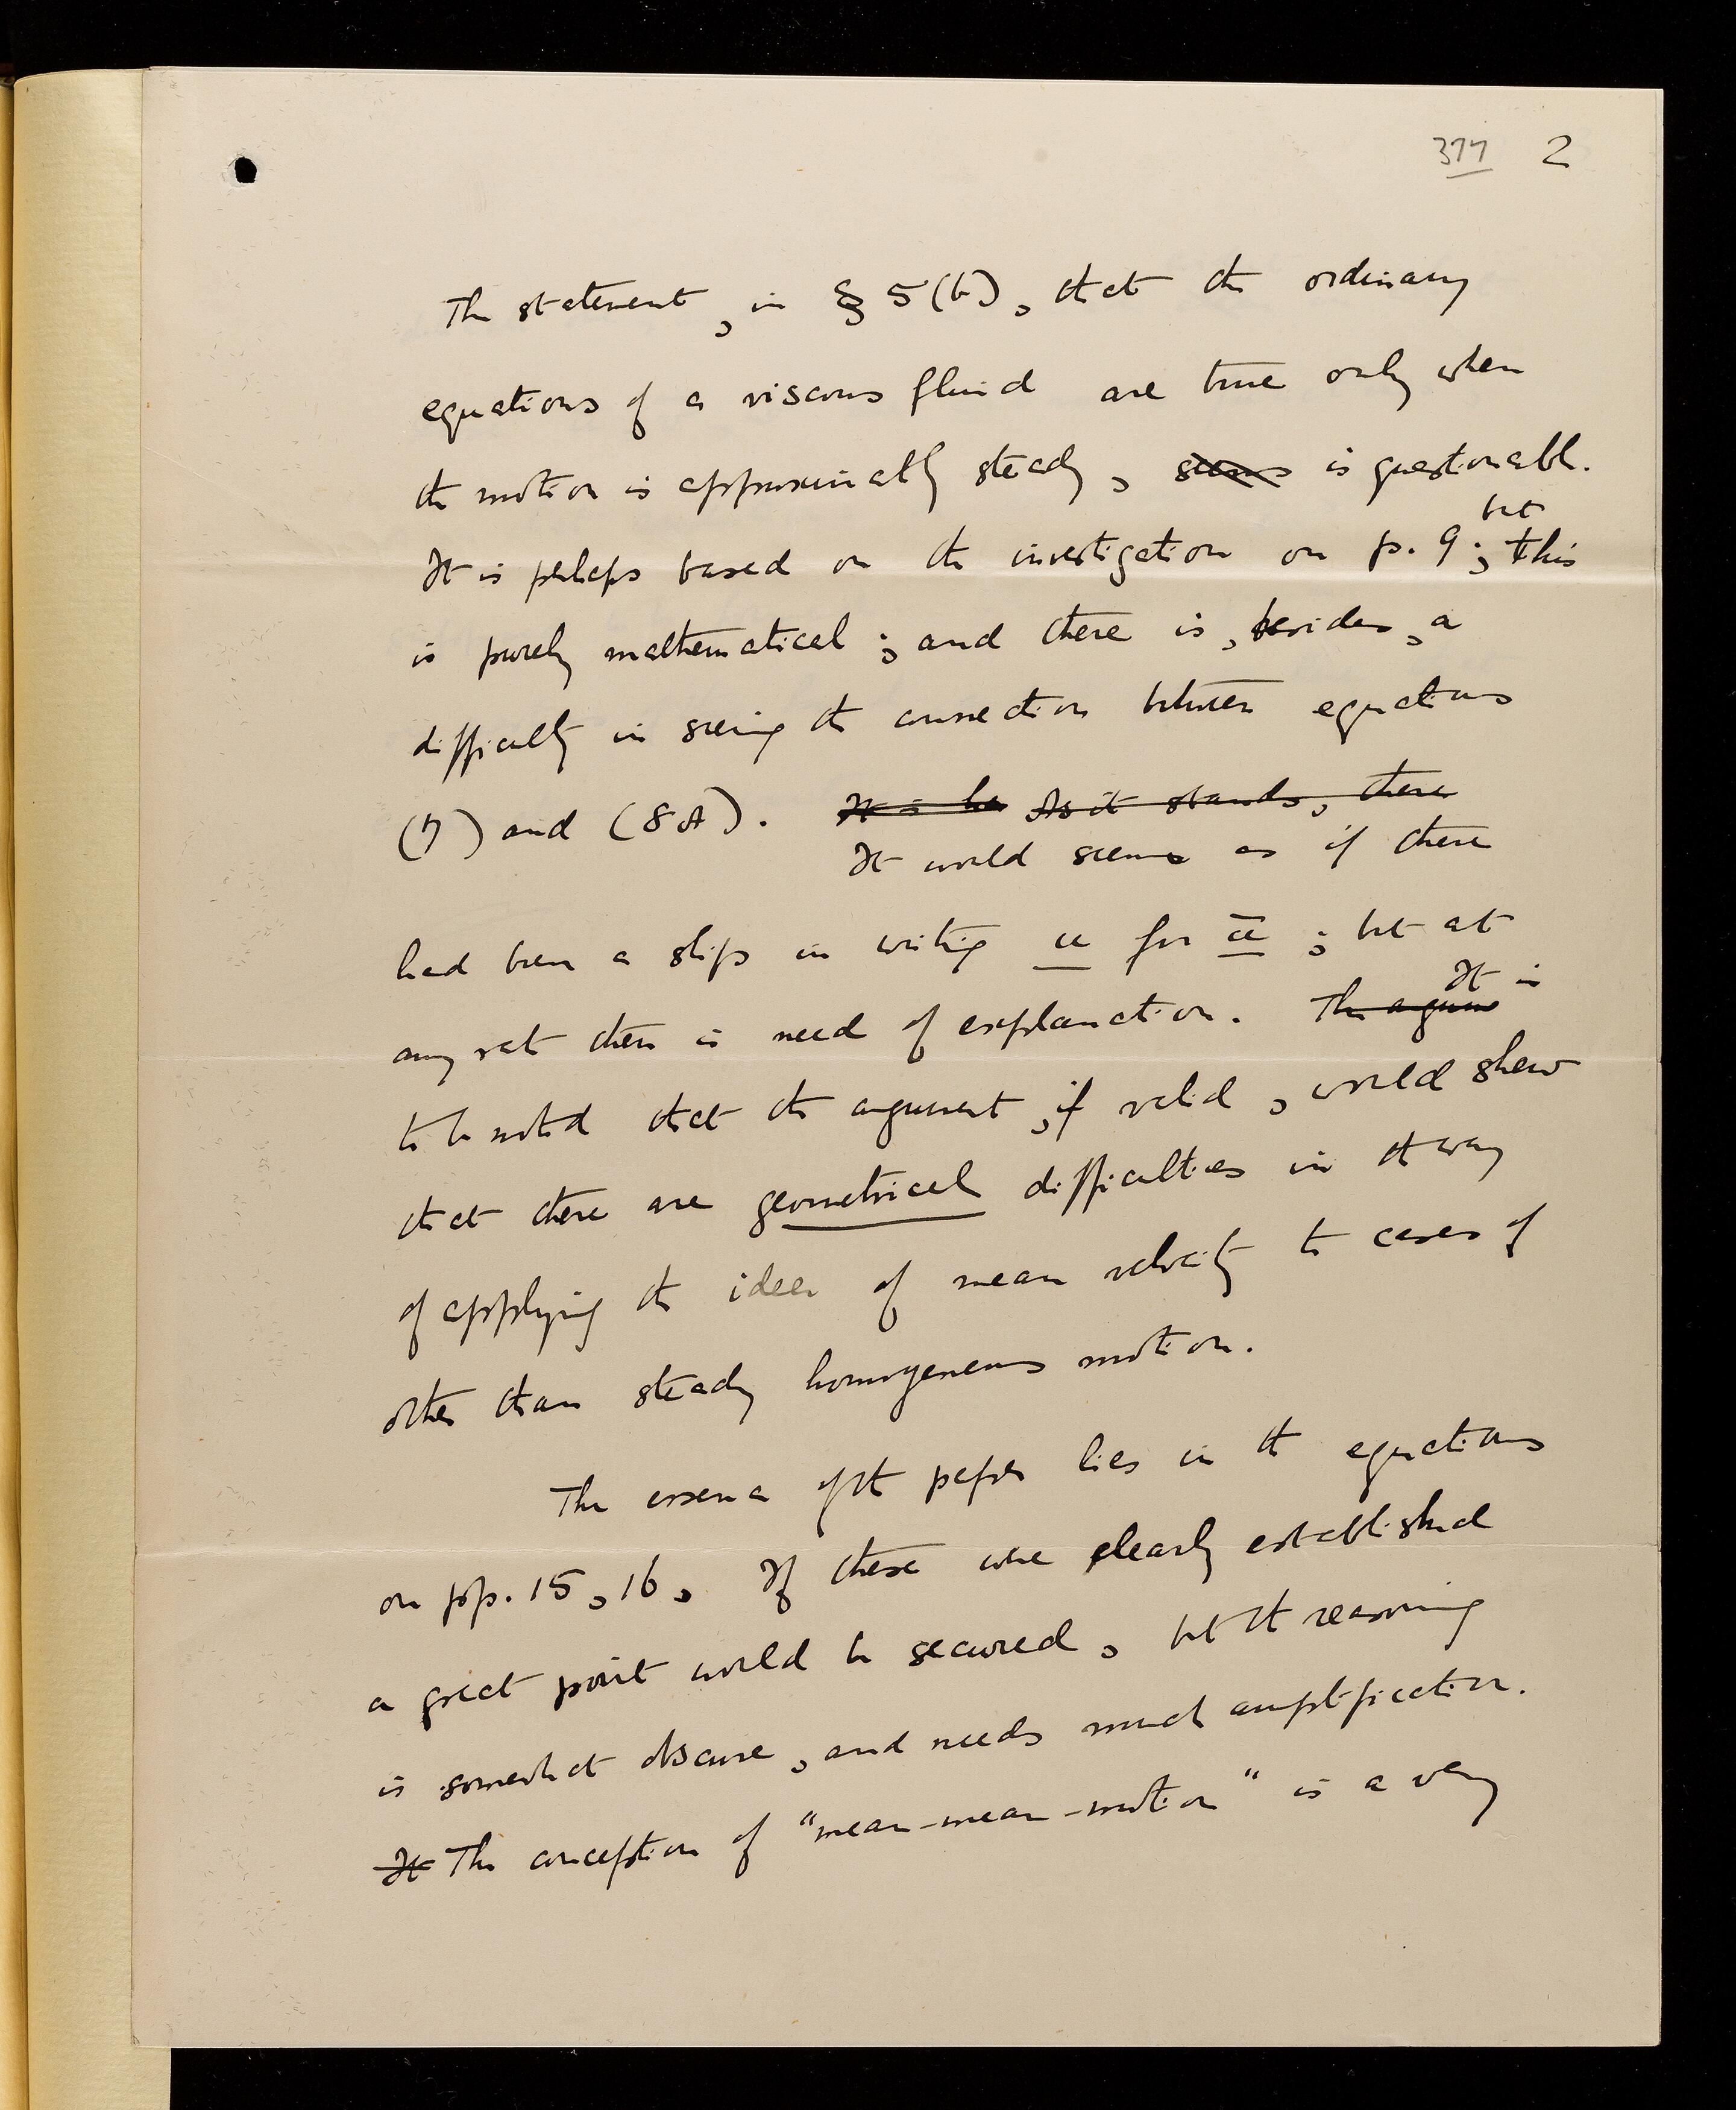 377 2
The statement, in § 5(b), that the ordinary
equations of a viscous fluid are true only when
the motion is approximately steady, seems is questionable.
but
It is perhaps based on the investigation on p. 9; this
is purely mathematical; and there is, besides, a
difficulty in seeing the connection between equations
(7) and (8A). It is be As it stands, there
It would seem as if there
had been a slip in writing u for ū; but at
It is
any rate there is need of explanation. The argume
to be noted that the argument, if valid, would shew
that there are geometrical difficulties in the way
of applying the idea of mean velocity to cases of
other than steady homogeneous motion.
The essence of the paper lies in the equations
on pp. 15, 16. If these were clearly established
a great point would be secured, but the reasoning
is somewhat obscure, and needs much amplification.
It The conception of "mean-mean-motion" is a very